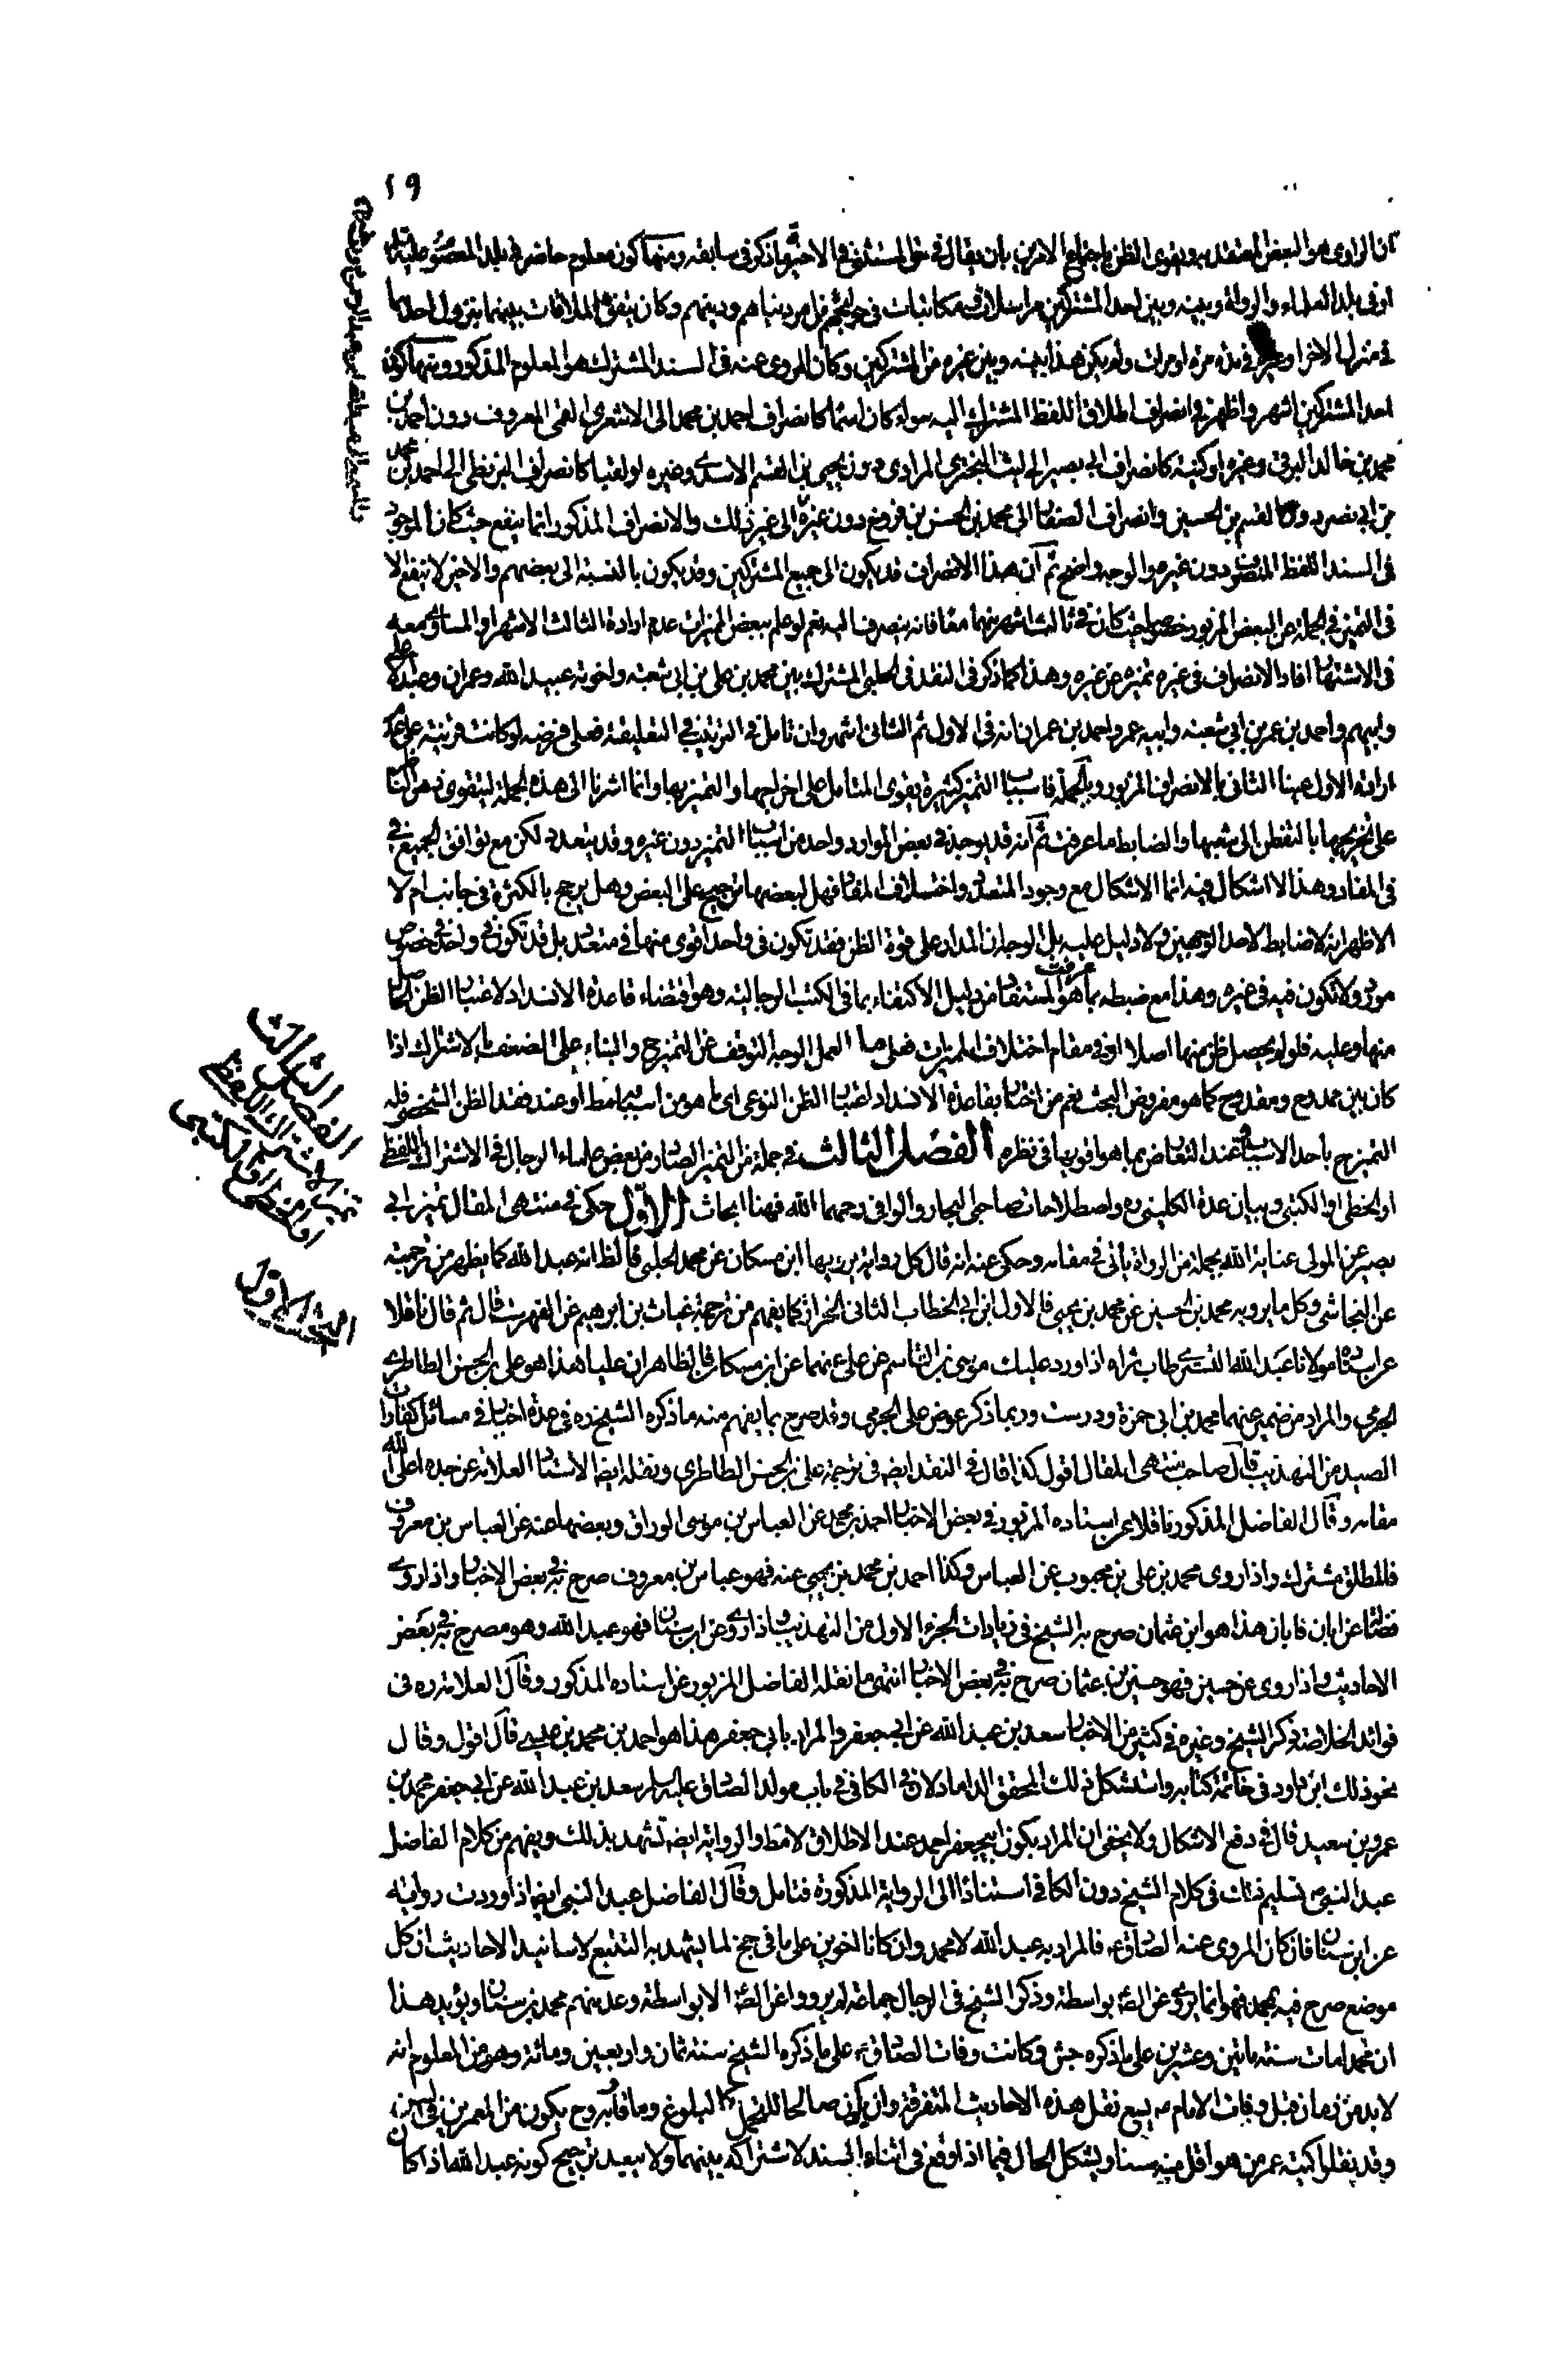 ١٩
كان الراوى هو البعض المعتقد به ويقوى الظن باجتماع الامرين بان يقال فى حق المستثنى فى الاخير ما ذكر فى سابقه ومنهما كون معلوم حاضر فى بلد المعصوم
او فى بلد العلماء والرواة وبينه وبين احد المشتركين مراسلات ومكاتبات فى حوائجهم من امر دنياهم ودينهم وكان يتفق الملاقات بينهما بنزول احدهما
فى منزل الاخر او فى بلده مرة او مرات ولم يكن هذا بينه وبين غيره من المشتركين وكان المروى عنه فى السند المشترك هو المعلوم المذكور ومنها كون
احد المشتركين اشهر واظهر فى انصراف اطلاق اللفظ المشترك اليه سواء كان اسما كانصراف احمد بن محمد الى الاشعرى القمى المعروف دون احمد بن
محمد بن خالد البرقى وغيره او كنية كانصراف ابى بصير الى ليث البخترى المرادى دون يحيى بن القسم الاسدى وغيره او لقبا كانصراف البزنطى الى احمد بن محمد
بن ابى نصر دون القسم بن الحسين وانصراف الصفار الى محمد بن الحسن بن فروخ دون غيره الى غير ذلك والانصراف المذكور انما ينفع حيث كان الموجود
فى السند اللفظ المنصرف دون غيره والوجه واضح ثم ان هذا الانصراف قد يكون الى جميع المشتركين وقد يكون بالنسبة الى بعضهم والاخير لا ينفع الا
فى التميز فى الجملة عن البعض المزبور خصوصا حيث كان ثم ثالث اشهر منهما معا فانه ينصرف اليه نعم لو علم ببعض المميزات عدم ارادة الثالث الاشهر او المساوى معه
فى الاشتهار افاد الانصراف فى غيره تميزه عن غيره وهذا كما ذكر فى النقد فى الحلبى المشترك بين محمد بن على بن ابى شعبة واخوته عبيد الله وعمران وعبد الاعلى
وابيهم واحمد بن عمر بن ابى شعبة وابيه عمر واحمد بن عمران انه فى الاول ثم الثانى اشهر وان تامل فى الترتيب فى التعليقة فعلى فرضه لو كانت قرينة على عدم
ارادة الاول عينا الثانى بالانصراف المزبور وبالجملة فاسباب التميز كثيرة يقوى المتامل على اخراجها والتميز بها وانما اشرنا الى هذه الجملة ليتقوى
على تخريجها بالتفطن الى شبهها والضابط ما عرفت ثم انه قد يوجد فى بعض الموارد واحد من اسباب التميز دون غيره وقد يتعدد لكن مع توافق الجميع
فى المفاد وهذا لا اشكال فيه انما الاشكال مع وجود المتعدد واختلاف المفاد فهل لبعضها ترجيح على البعض وهل يرجح بالكثرة فى جانب ام لا
الاظهر انه لا ضابط لاحد الوجهين ولا دليل عليه بل الوجه ان المدار على قوة الظن فقد تكون فى واحد اقوى منها فى متعدد بل قد تكون فى واحد فى خصوص
مورد ولا تكون فيه فى غيره وهذا مع ضبطه بما عرفت هو المستفاد من دليل الاكتفاء بما فى الكتب الرجالية وهو اقتضاء قاعدة الانسداد لاعتبار الظن الحاصل
منها وعليه فلو لم يحصل ظن منها اصلا او فى مقام اختلاف المميزات فعلى ما العمل الوجه التوقف عن التميز والبناء على الضعف بالاشتراك اذا
كان بين ممدوح ومقدوح كما هو مفروض البحث نعم من اختار بقاعدة الانسداد اعتبار الظن النوعى اى ما هو من اسبابه مط او عند فقد الظن الشخصى فله
الترجيح باحد الاسباب عند التعارض بما هو اقويها فى نظره الفصل الثالث فى جملة من التميز الصادر من بعض علماء الرجال فى الاشتراك اللفظى
او الخطى او الكتبى وبيان عدة الكلينى ره واصطلاحات صاحبى البحار والوافى رحمهما الله فهنا ابحاث الاول حكى فى منتهى المقال تميز ابى
بصير عن المولى عناية الله بجملة من الرواة ياتى فى مقامه وحكى عنه انه قال كل رواية يرويها ابن مسكان عن محمد الحلبى فالظ انه عبد الله كما يظهر من ترجمته
عن النجاشى وكل ما يرويه محمد بن الحسين عن محمد بن يحيى فالاول ابن ابى الخطاب الثانى الخزاز كما يفهم من ترجمة غياث بن ابرهيم عن الفهرست قال ثم قال ناقلا
عن استاده مولانا عبد الله التسترى طاب ثراه اذا ورد عليك موسى بن القاسم عن على عنهما عن ابن مسكان فالظاهر ان عليا هذا هو على بن الحسن الطاطرى
الجرمى والمراد من ضمير عنهما محمد بن ابى حمزة ودرست وربما ذكر عوض على الجرمى وقد صرح بما يفهم منه ما ذكره الشيخ ره فى عدة اخبار فى مسائل كفارات
الصيد من التهذيب قال صاحب منتهى المقال اقول كذا قال فى النقد ايضه فى ترجمة على بن الحسن الطاطرى ونقله ايضا الاستاد العلامة عن جده اعلى الله
مقامه وقال الفاضل المذكور ناقلا عن استاده المزبور فى بعض الاخبار احمد بن محمد عن العباس بن موسى الوراق وبعضها عنه عن العباس بن معروف
فالمطلق مشترك واذا روى محمد بن على بن محبوب عن العباس وكذا احمد بن محمد بن يحيى عنه فهو عباس بن معروف صرح به فى بعض الاخبار واذا روى
فضالة عن ابان فابان هذا هو ابن عثمان صرح به الشيخ فى زيادات الجزء الاول من التهذيب واذا روى عن ابن سنان فهو عبد الله وهو مصرح به فى بعض
الاحاديث واذا روى عن حسين فهو حسين بن عثمان صرح به فى بعض الاخبار انتهى ما نقله الفاضل المزبور عن استاده المذكور وقال العلامة ره فى
فوائد الخلاصة ذكر الشيخ وغيره فى كثير من الاخبار سعد بن عبد الله عن ابى جعفر والمراد بابى جعفر هذا هو احمد بن محمد بن عيسى قال اقول وقال
نحو ذلك ابن داود فى خاتمة كتابه واستشكل ذلك المحقق الداماد لان فى الكافى فى باب مولد الصادق عليه السلام سعد بن عبد الله عن ابى جعفر محمد بن
عمرو بن سعيد قال فى دفع الاشكال ولا يخفى ان المراد بكون ابى جعفر احمد عند الاطلاق لا مط والرواية ايضه تشهد بذلك ويفهم من كلام الفاضل
عبد النبى تسليم ذلك فى كلام الشيخ دون الكافى استنادا الى الرواية المذكورة فتامل وقال الفاضل عبد النبى ايضا اذا وردت رواية
عن ابن سنان فان كان المروى عنه الصادق ع فالمراد به عبد الله لا محمد وان كانا اخوين على ما فى جخ لما يشهد به التتبع لاسانيد الاحاديث ان كل
موضع صرح فيه بمحمد فهو انما يروى عن الصه بواسطة وذكر الشيخ فى الرجال جماعة لم يرووا عن الصه الا بواسطة وعد منهم محمد بن سنان ويؤيد هذا
ان محمدا مات سنة ماتين وعشرين على ما ذكره جش وكانت وفات الصادق ع على ما ذكره الشيخ سنة ثمان واربعين ومائة وهو من المعلوم انه
لا بد من زمان قبل وفات الامام ع يسع نقل هذه الاحاديث المتفرقة وان يكون صالحا للتحمل كالبلوغ وما قاربه وح يكون من المعمرين فى السن
وقد نقلوا كمية عمر من هو اقل منه سنا ويشكل الحال فيما اذا وقع فى اثناء السند لاشتراكه بينهما ولا يبعد ترجيح كونه عبد الله اذا كان
الفصل الثالث
تميز المشترك اللفظى
او من خطى او الكتبى
البحث الاول